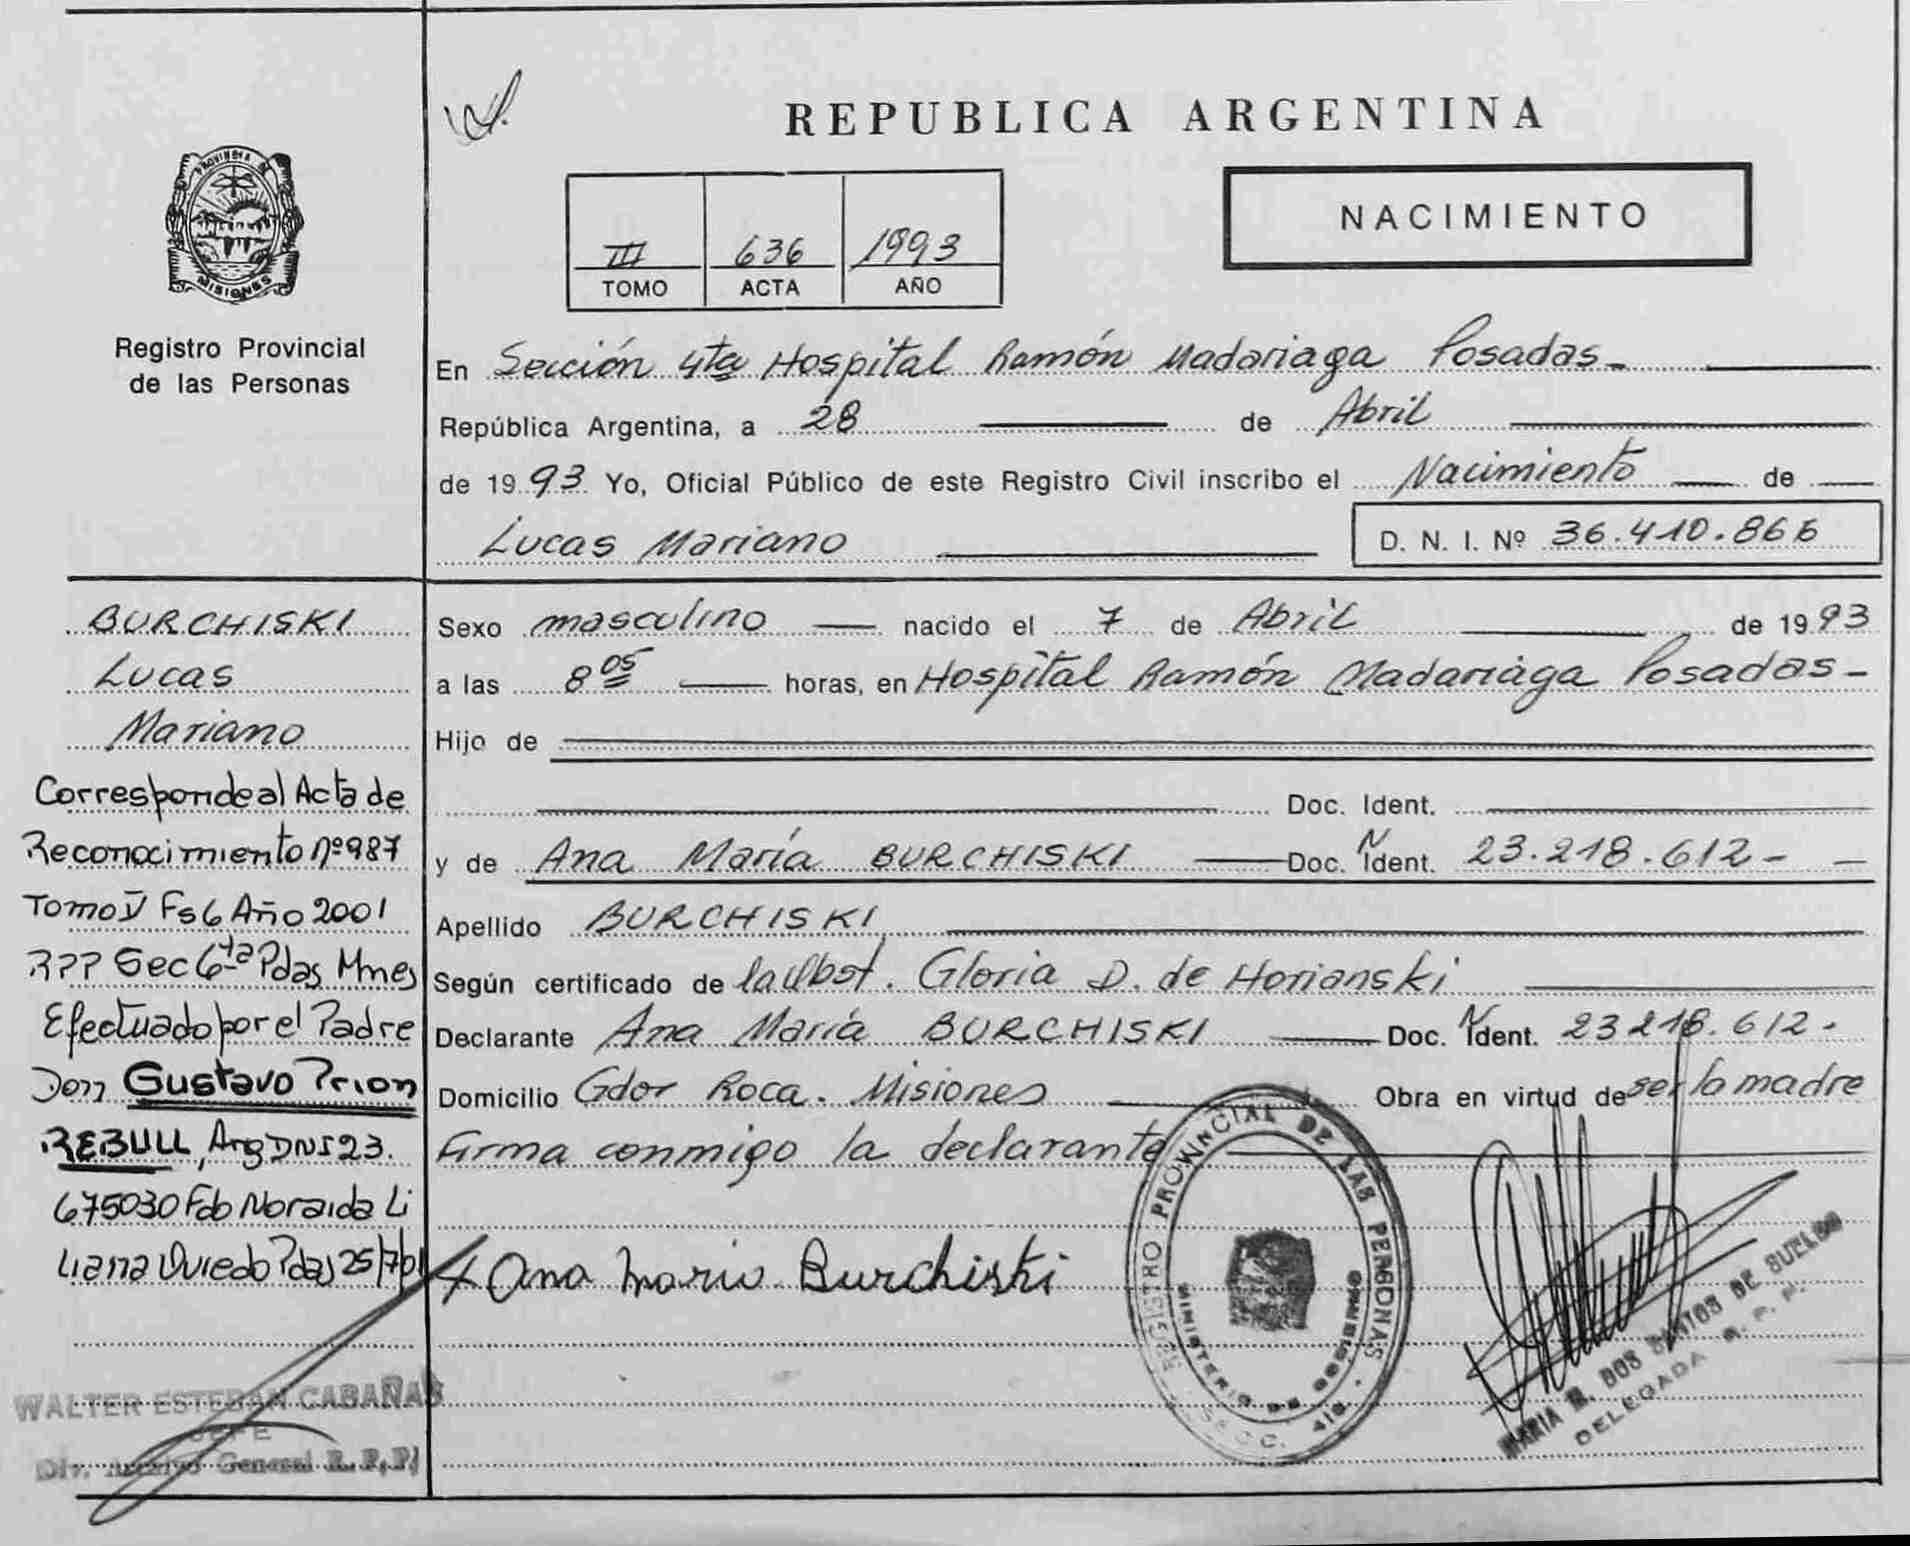 PROVINCIA DE
MISIONES
Registro Provincial
de las Personas
REPUBLICA ARGENTINA
III 636 1993
TOMO ACTA AÑO
NACIMIENTO
En Sección 4ta Hospital Ramón Madariaga Posadas
República Argentina, a 28 de Abril
de 1993 Yo, Oficial Público de este Registro Civil inscribo el Nacimiento de
Lucas Mariano D. N. I. Nº 36.410.866
BURCHISKI
Lucas
Mariano
Corresponde al Acta de
Reconocimiento nº 987
Tomo V Fs 6 Año 2001
RPP Sec 6ta Pdas Mnes
Efectuado por el Padre
Don Gustavo Prion
REBULL, Arg DNI 23.
675030 Fdo Noraida Li
liana Oviedo Pdas 25/7/01
WALTER ESTEBAN CABAÑAS
JEFE
Div. Archivo General R. P. P.
Sexo masculino nacido el 7 de Abril de 1993
a las 8 05 horas, en Hospital Ramón Madariaga Posadas-
Hijo de
Doc. Ident.
y de Ana María BURCHISKI Doc. N Ident. 23.218.612-
Apellido BURCHISKI
Según certificado de la Obst. Gloria D. de Horianski
Declarante Ana María BURCHISKI Doc. N Ident. 23 218.612-
Domicilio Gdor Roca. Misiones Obra en virtud de ser la madre
Firma conmigo la declarante
Ana Maria Burchiski
REGISTRO PROVINCIAL DE LAS PERSONAS
MINISTERIO DE GOBIERNO
MARIA DOS SANTOS DE
DELEGADA R. P. P.